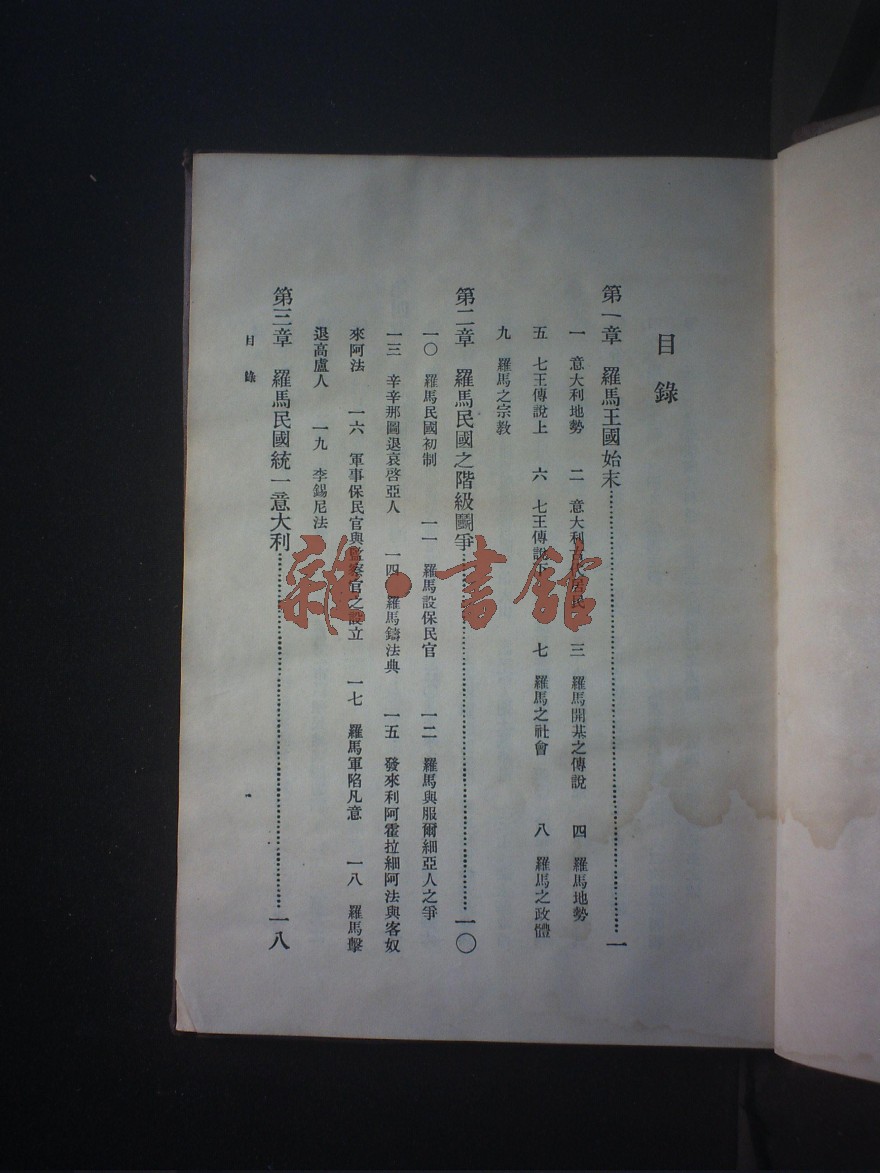 目錄
第一章　羅馬王國始末……一
一　意大利地勢　二　意大利古代居民　三　羅馬開基之傳說　四　羅馬地勢
五　七王傳說上　六　七王傳說下　七　羅馬之社會　八　羅馬之政體
九　羅馬之宗教
第二章　羅馬民國之階級鬭爭……一〇
一〇　羅馬民國初制　一一　羅馬設保民官　一二　羅馬與服爾細亞人之爭
一三　辛辛那圖退哀啓亞人　一四　羅馬鑄法典　一五　發來利阿霍拉細阿法與客奴
來阿法　一六　軍事保民官與監察官之設立　一七　羅馬軍陷凡意　一八　羅馬擊
退高盧人　一九　李錫尼法
第三章　羅馬民國統一意大利……一八
目錄
雜·書館